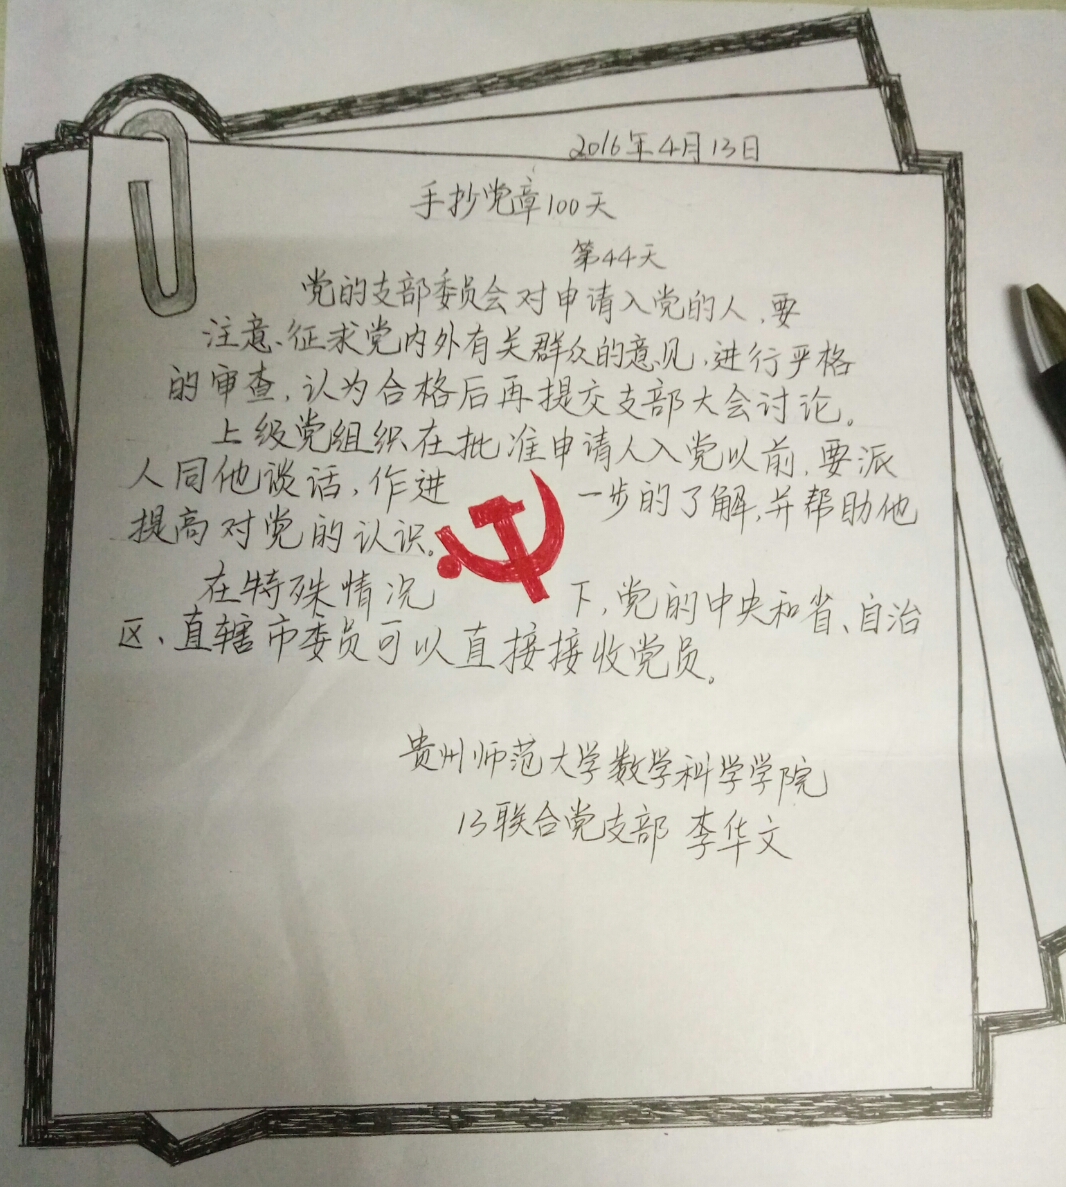 2016年4月13日
手抄党章100天
第44天
党的支部委员会对申请入党的人，要
注意、征求党内外有关群众的意见，进行严格
的审查，认为合格后再提交支部大会讨论。
上级党组织在批准申请人入党以前，要派
人同他谈话，作进一步的了解，并帮助他
提高对党的认识。
在特殊情况下，党的中央和省、自治
区、直辖市委员可以直接接收党员。
贵州师范大学数学科学学院
13联合党支部 李华文